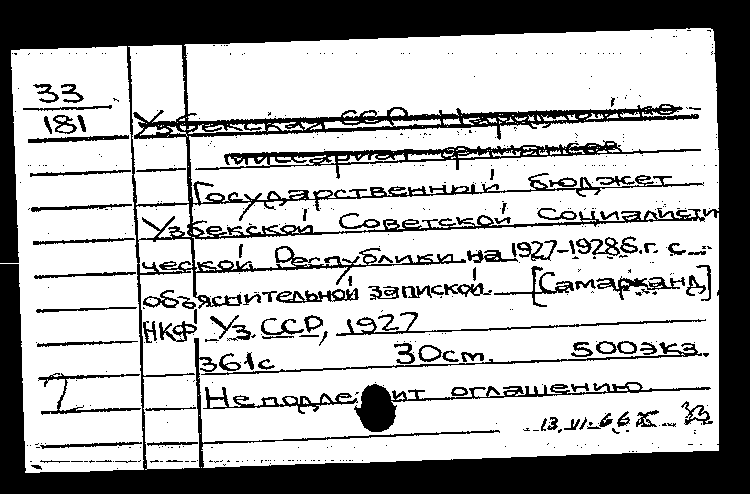 33
181
Узбекская ССР. Народный ко
миссариат финансов
Государственный бюджет
Узбекской Советской Социалисти
ческой Республики на 1927-1928б.г. с
объяснительной запиской. [Самарканд],
НКФ Уз. ССР, 1927
361с. 30см. 500экз.
Не подлежит оглашению
13.VI.66